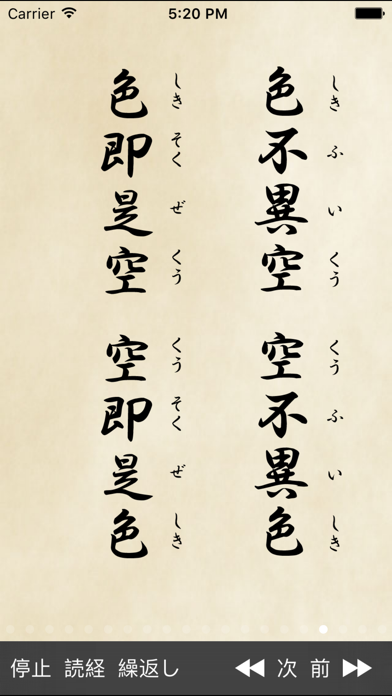 Carrier 5:20 PM
色不異空 空不異色
しき ふ い くう くう ふ い しき
色即是空 空即是色
しき そく ぜ くう くう そく ぜ しき
停止 読経 繰返し 次 前